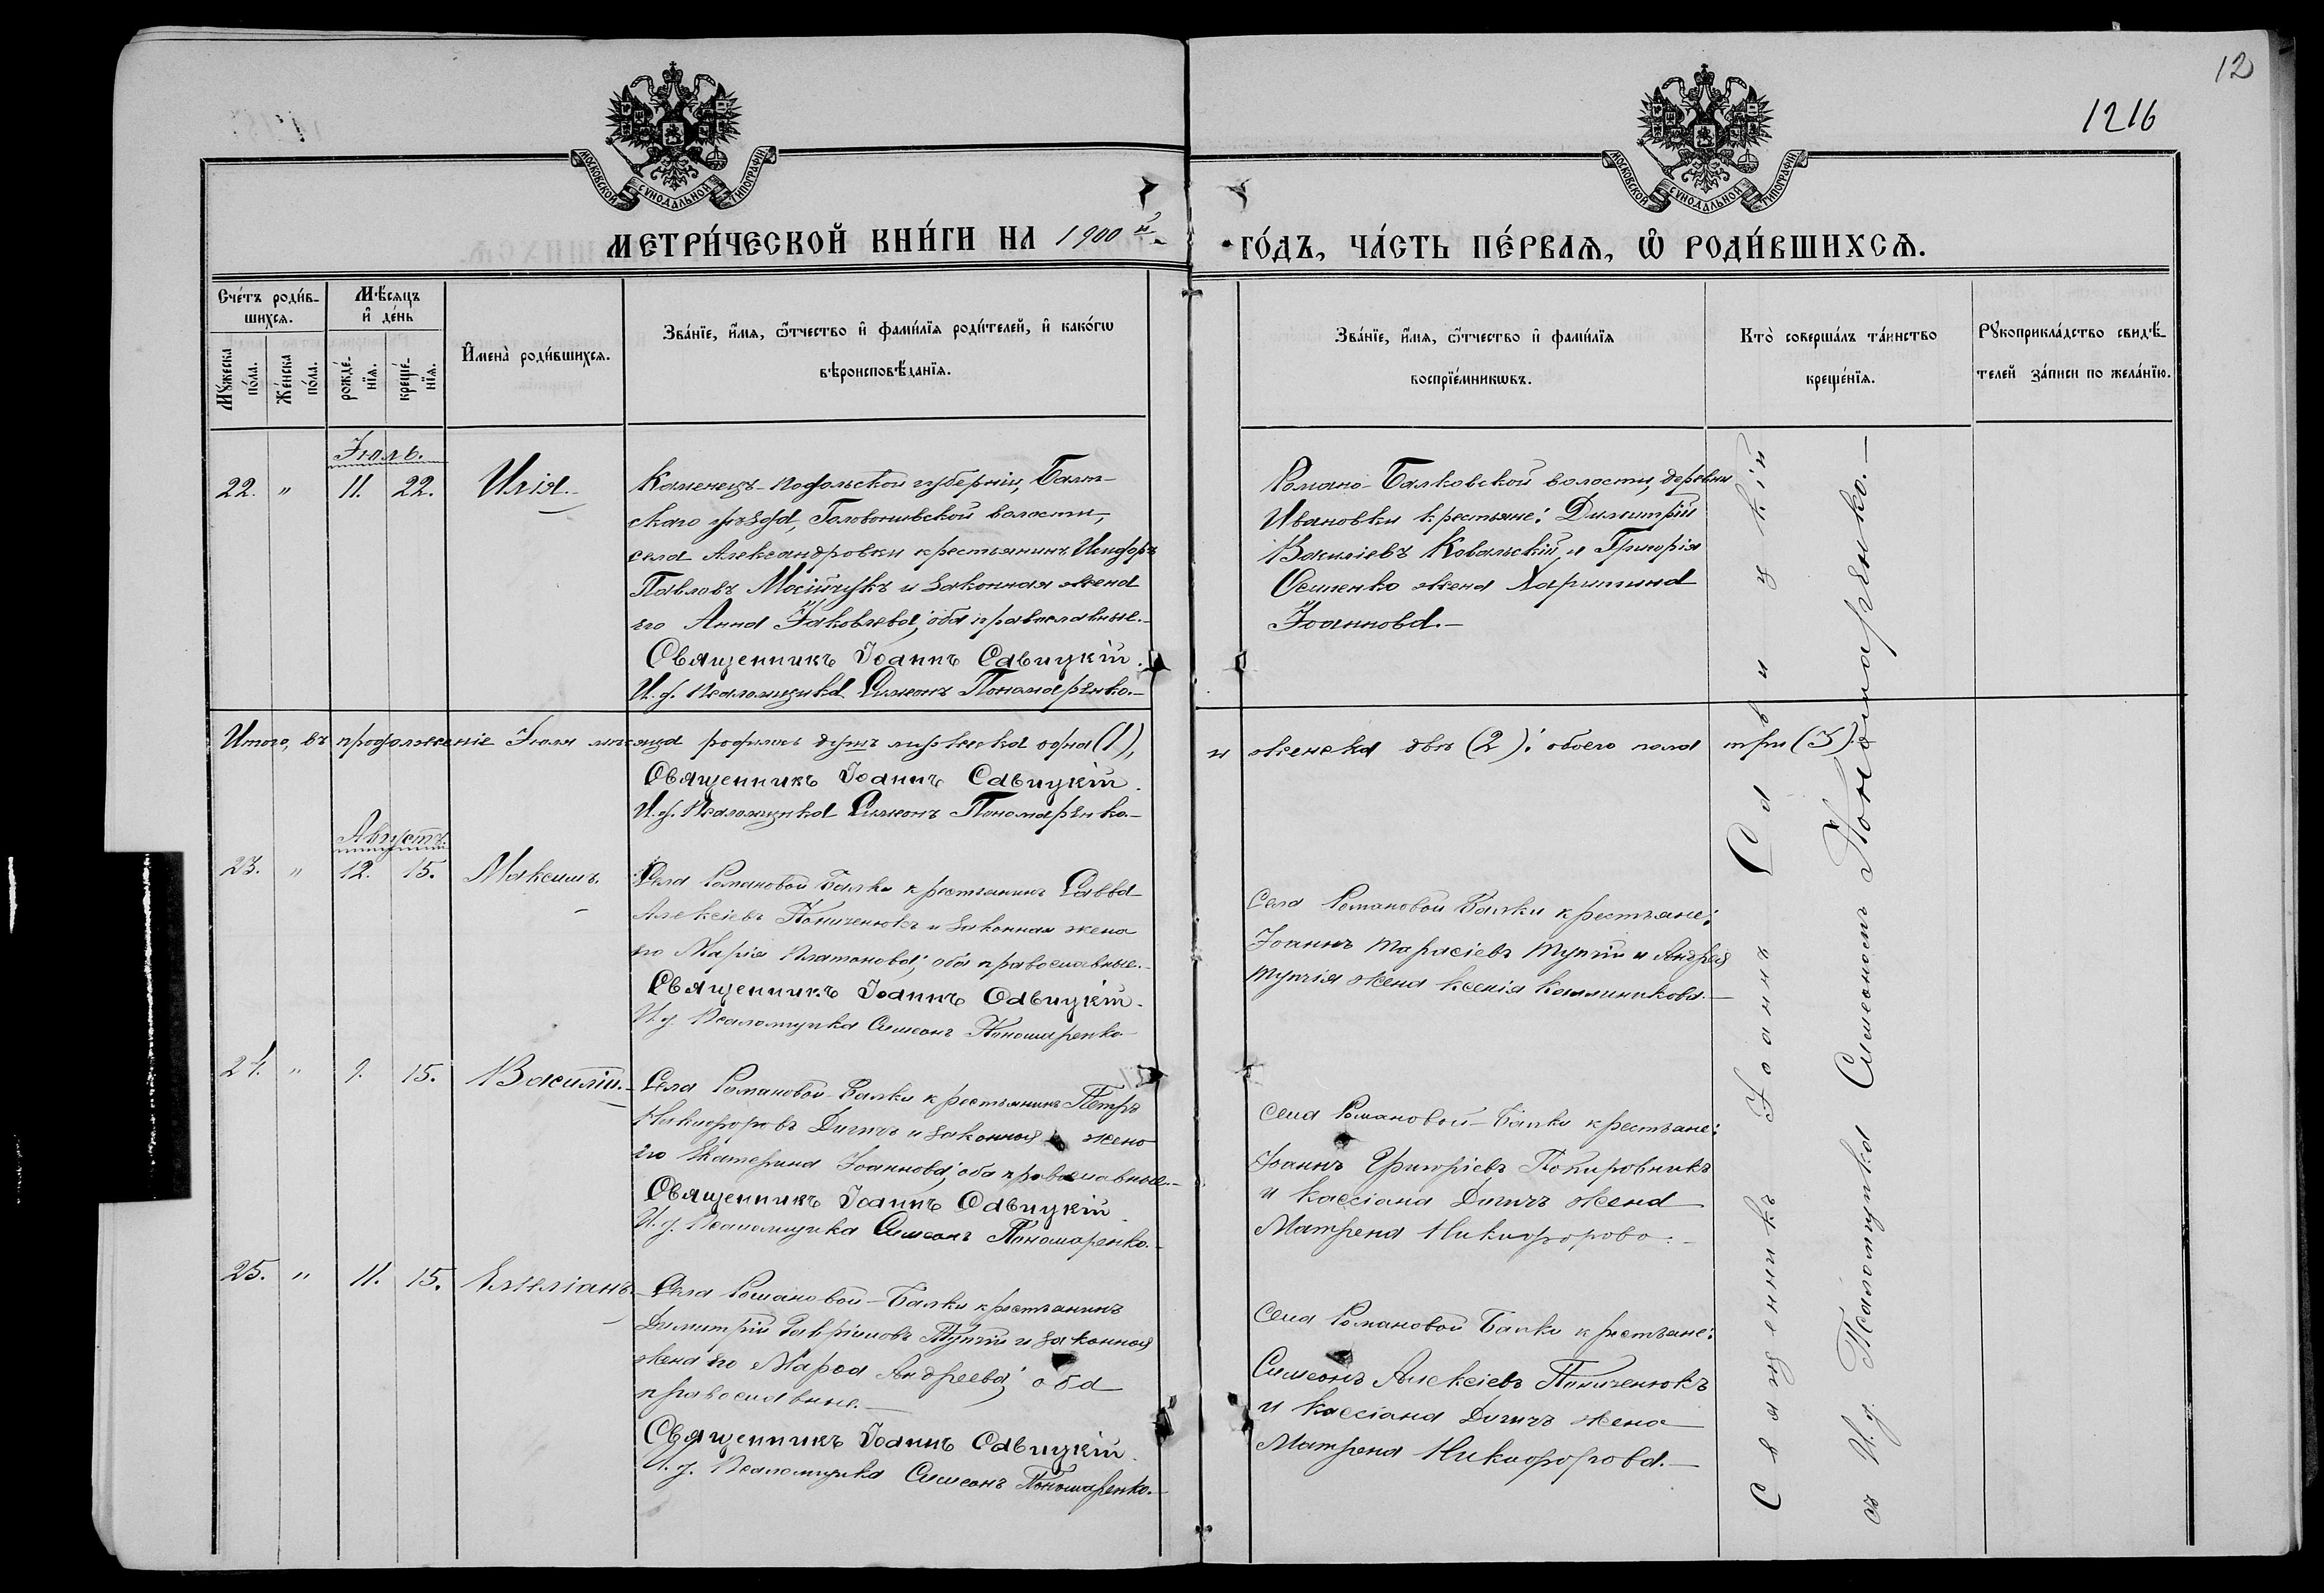 12
1216
МОСКОВСКОЙ СѴНОДАЛЬНОЙ ТИПОГРАФІИ
МОСКОВСКОЙ СѴНОДАЛЬНОЙ ТИПОГРАФІИ
МЕТРИ́ЧЕСКОЙ КНИ́ГИ НА 1900й
ГО́ДЪ, ЧА́СТЬ ПЕ́РВАѦ, Ѡ҆ РОДИ́ВШИХСѦ.
Сче́тъ роди́в-
шихсѧ.
Мꙋжеска по́ла.
Же́нска по́ла.
Мѣ́сѧцъ
и҆ де́нь
рожде́-
нїѧ.
креще́-
нїѧ.
И҆мена̀ роди́вшихсѧ.
Зва́нїе, и҆́мѧ, ѻ҆́тчество и҆ фами́лїѧ роди́телей, и҆ како́гѡ
вѣроисповѣ́данїѧ.
Зва́нїе, и҆́мѧ, ѻ҆́тчество и҆ фами́лїѧ
воспрїе́мникѡвъ.
Кто̀ соверша́лъ та́инство
креще́нїѧ.
Рꙋкоприкла́дство свидѣ́-
телей за́писи по жела́нїю.
Іюль.
22. " 11. 22. Илія.
Каменецъ-Подольской губерніи, Балт-
скаго уѣзда, Головоневской волости,
села Александровки крестьянинъ Исидоръ
Павловъ Мосійчукъ и законная жена
его Анна Іаковлева; оба православные.
Священникъ Іоаннъ Савицкій.
И. д. Псаломщика Симеонъ Пономаренко.
Романо-Балковской волости, деревни
Ивановки крестьяне: Димитрій
Василіевъ Ковальскій и Григорія
Осипенко жена Харитина
Іоаннова.
Итого, въ продолженіе Іюля мѣсяца родилось душъ мужеска одна (1),
и женска двѣ (2): обоего пола три (3).
Священникъ Іоаннъ Савицкій.
И. д. Псаломщика Симеонъ Пономаренко.
Августъ.
23. " 12. 15. Максимъ.
Села Романовой Балки крестьянинъ Савва
Алексіевъ Поличенюкъ и законная жена
его Марія Платонова; оба православные.
Священникъ Іоаннъ Савицкій.
И. д. Псаломщика Симеонъ Пономаренко
Села Романовой Балки крестьяне:
Іоаннъ Тарасіевъ Тупчій и Андрея
Тупчія жена Ксенія Каллиникова.
24. " 9. 15. Василій.
Села Романовой-Балки крестьянинъ Петръ
Никифоровъ Дигичъ и законная жена
его Екатерина Іоаннова; оба православные.
Священникъ Іоаннъ Савицкій.
И. д. Псаломщика Симеонъ Пономаренко.
Села Романовой-Балки крестьяне:
Іоаннъ Григоріевъ
и Кассіана Дигичъ жена
Матрена Никифорова.
25. " 11. 15. Емеліанъ
Села Романовой-Балки крестьянинъ
Димитрій Гавріиловъ Тупчій и законная
жена его Марѳа Андреева; оба
православные.
Священникъ Іоаннъ Савицкій.
И. д. Псаломщика Симеонъ Пономаренко.
Села Романовой Балки крестьяне:
Симеонъ Алексіевъ Поличенюкъ
и Кассіана Дигичъ жена
Матрена Никифорова.
Священникъ Іоаннъ Савицкій
съ И. д. Псаломщика Симеономъ Пономаренко.